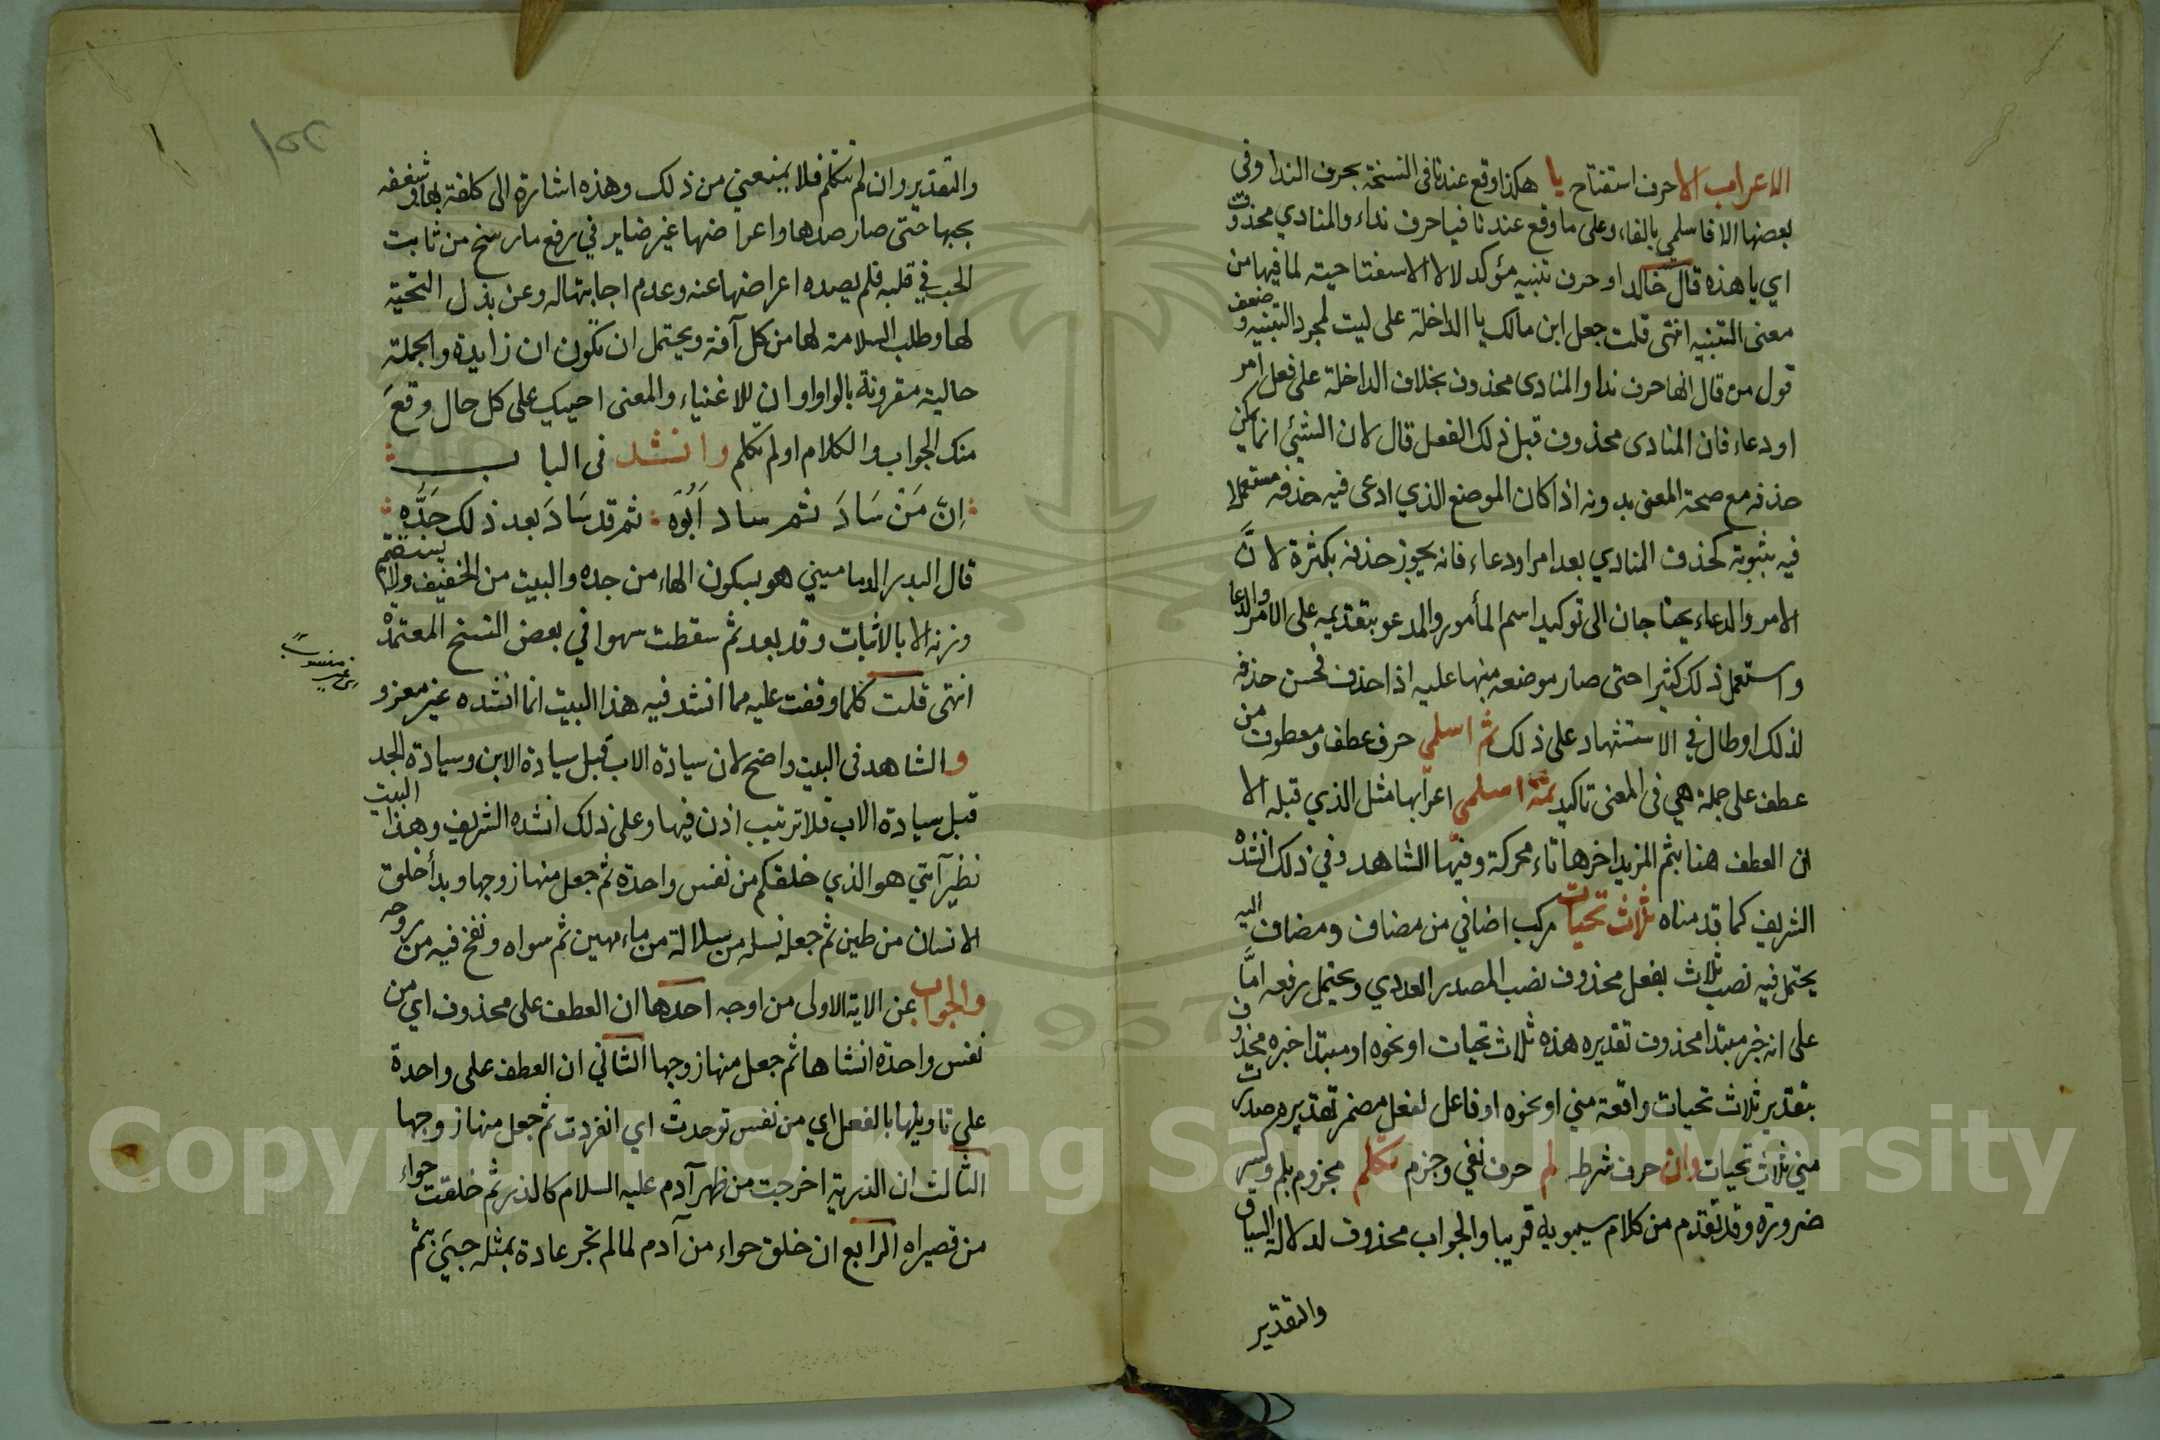 الاعراب الا حرف استفتاح يا هكذا وقع عندنا في النسخة بحرف الندا وفي
بعضها الا فاسلمي بالفاء وعلى ما وقع عندنا فيا حرف نداء والمنادي محذوف
اي يا هذه قال خالد او حرف تنبيه مؤكد لالا الاستفتاحية لما فيها من
معنى التنبيه انتهى قلت جعل ابن مالك يا الداخلة على ليت لمجرد التنبيه وضعف
قول من قال انها حرف ندا والمنادى محذوف بخلاف الداخلة على فعل امر
او دعاء فان المنادى محذوف قبل ذلك الفعل قال لان الشيئ انما يمكن
حذفه مع صحة المعنى بدونه اذا كان الموضع الذي ادعى فيه حذفه مستعملا
فيه ثبوته كحذف المنادي بعد امر او دعاء فانه يجوز حذفه بكثرة لانَّ
الامر والدعاء يحتاجان الى توكيد اسم المأمور والمدعو بتقديمه على الامر والدعا
واستعمل ذلك كثيرا حتى صار موضعه منبها عليه اذا حذف فحسن حذفه
لذلك اوطال في الاستشهاد على ذلك ثم اسلمي حرف عطف ومعطوف من
عطف على جملة هي في المعنى تاكيد ثمة اسلمي اعرابها مثل الذي قبله الا
ان العطف هنا بثم المزيد اخرها تاء محركة وفيها الشاهد وفي ذلك انشده
الشريف كما قدمناه ثلاث تحيات مركب اضافي من مضاف ومضاف اليه
يحتمل فيه نصب ثلاث بفعل محذوف نصب المصدر العددي ويحتمل رفعه امَّا
على انه خبر مبتدا محذوف تقديره هذه ثلاث تحيات او نحوه او مبتدا خبره محذوف
بتقدير ثلاث تحيات واقعة مني او نحوه او فاعل لفعل مضمر تقديره صدرت
مني ثلاث تحيات وان حرف شرط لم حرف نفي وجزم تكلم مجزوم بلم وكسر
ضرورة وقد تقدم من كلام سيبويه قريبا والجواب محذوف لدلالة السياق
والتقدير
والتقدير وان لم تتكلم فلا يمنعني من ذلك وهذه اشارة الى كلفة بها وشغفه
بحبها حتى صار صدها واعراضها غير ضاير في رفع ما رسخ من ثابت
الحب في قلبه فلم يصده اعراضها عنه وعدم اجابتها له وعن بذل التحية
لها وطلب السلامة لها من كل آفة ويحتمل ان تكون ان زايدة والجملة
حالية مقرونة بالواو او ان للاغنياء والمعنى احييك على كل حال وقعَ
منك الجواب والكلام او لم تكلم وانشد في الباب
اِنَّ مَنْ سَادَ ثم ساد اَبُوه ثم قد سَادَ بعد ذلك جَدُّه
قال البدر الدماميني هو بسكون الهاء من جده والبيت من الخفيف ولا يستقيم
وزنه الا بالاثبات وقد بعد ثم سقطت سهوا في بعض النسخ المعتمدة
انتهى قلت كلما وقفت عليه مما انشد فيه هذا البيت انما انشده غير معزو
اي غير منسوب
والشاهد في البيت واضح لان سيادة الاب قبل سيادة الابن وسيادة الجد
قبل سيادة الاب فلا ترتيب اذن فيها وعلى ذلك انشده الشريف وهذا البيت
نظير آيتي هو الذي خلقكم من نفس واحدة ثم جعل منها زوجها وبدأ خلق
الانسان من طين ثم جعل نسله من سلالة من ماء مهين ثم سواه ونفخ فيه من روحه
والجواب عن الاية الاولى من اوجه احدها ان العطف على محذوف اي من
نفس واحدة انشاها ثم جعل منها زوجها الثاني ان العطف على واحدة
على تاويلها بالفعل اي من نفس توحدت اي انفردت ثم جعل منها زوجها
الثالث ان الذرية اخرجت من ظهر آدم عليه السلام كالذر ثم خلقت حواء
من قصيراه الرابع ان خلق حواء من آدم لما لم تجر عادة بمثله جيئ بثم
Copyright © King Saud University
1957